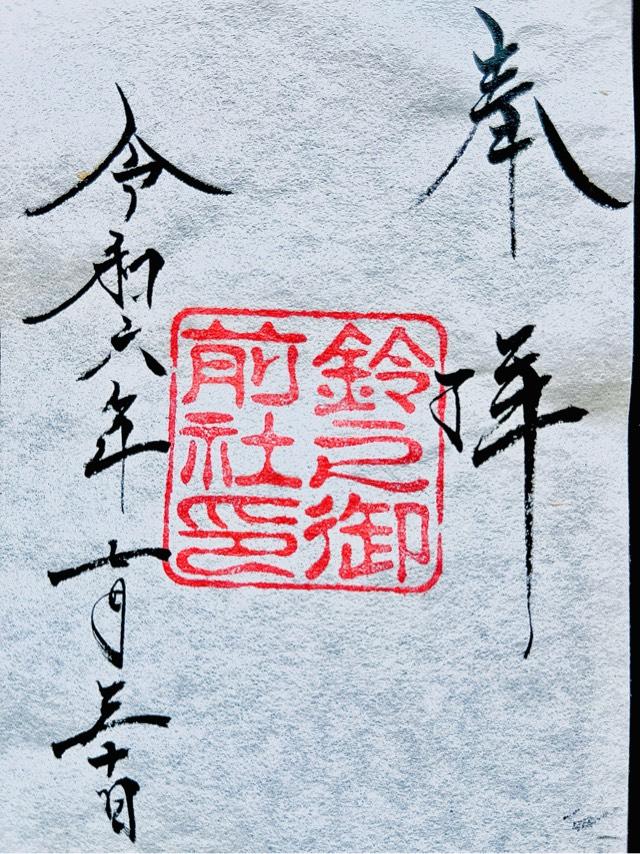 奉拝
鈴之御
前社印
令和六年十月三十日